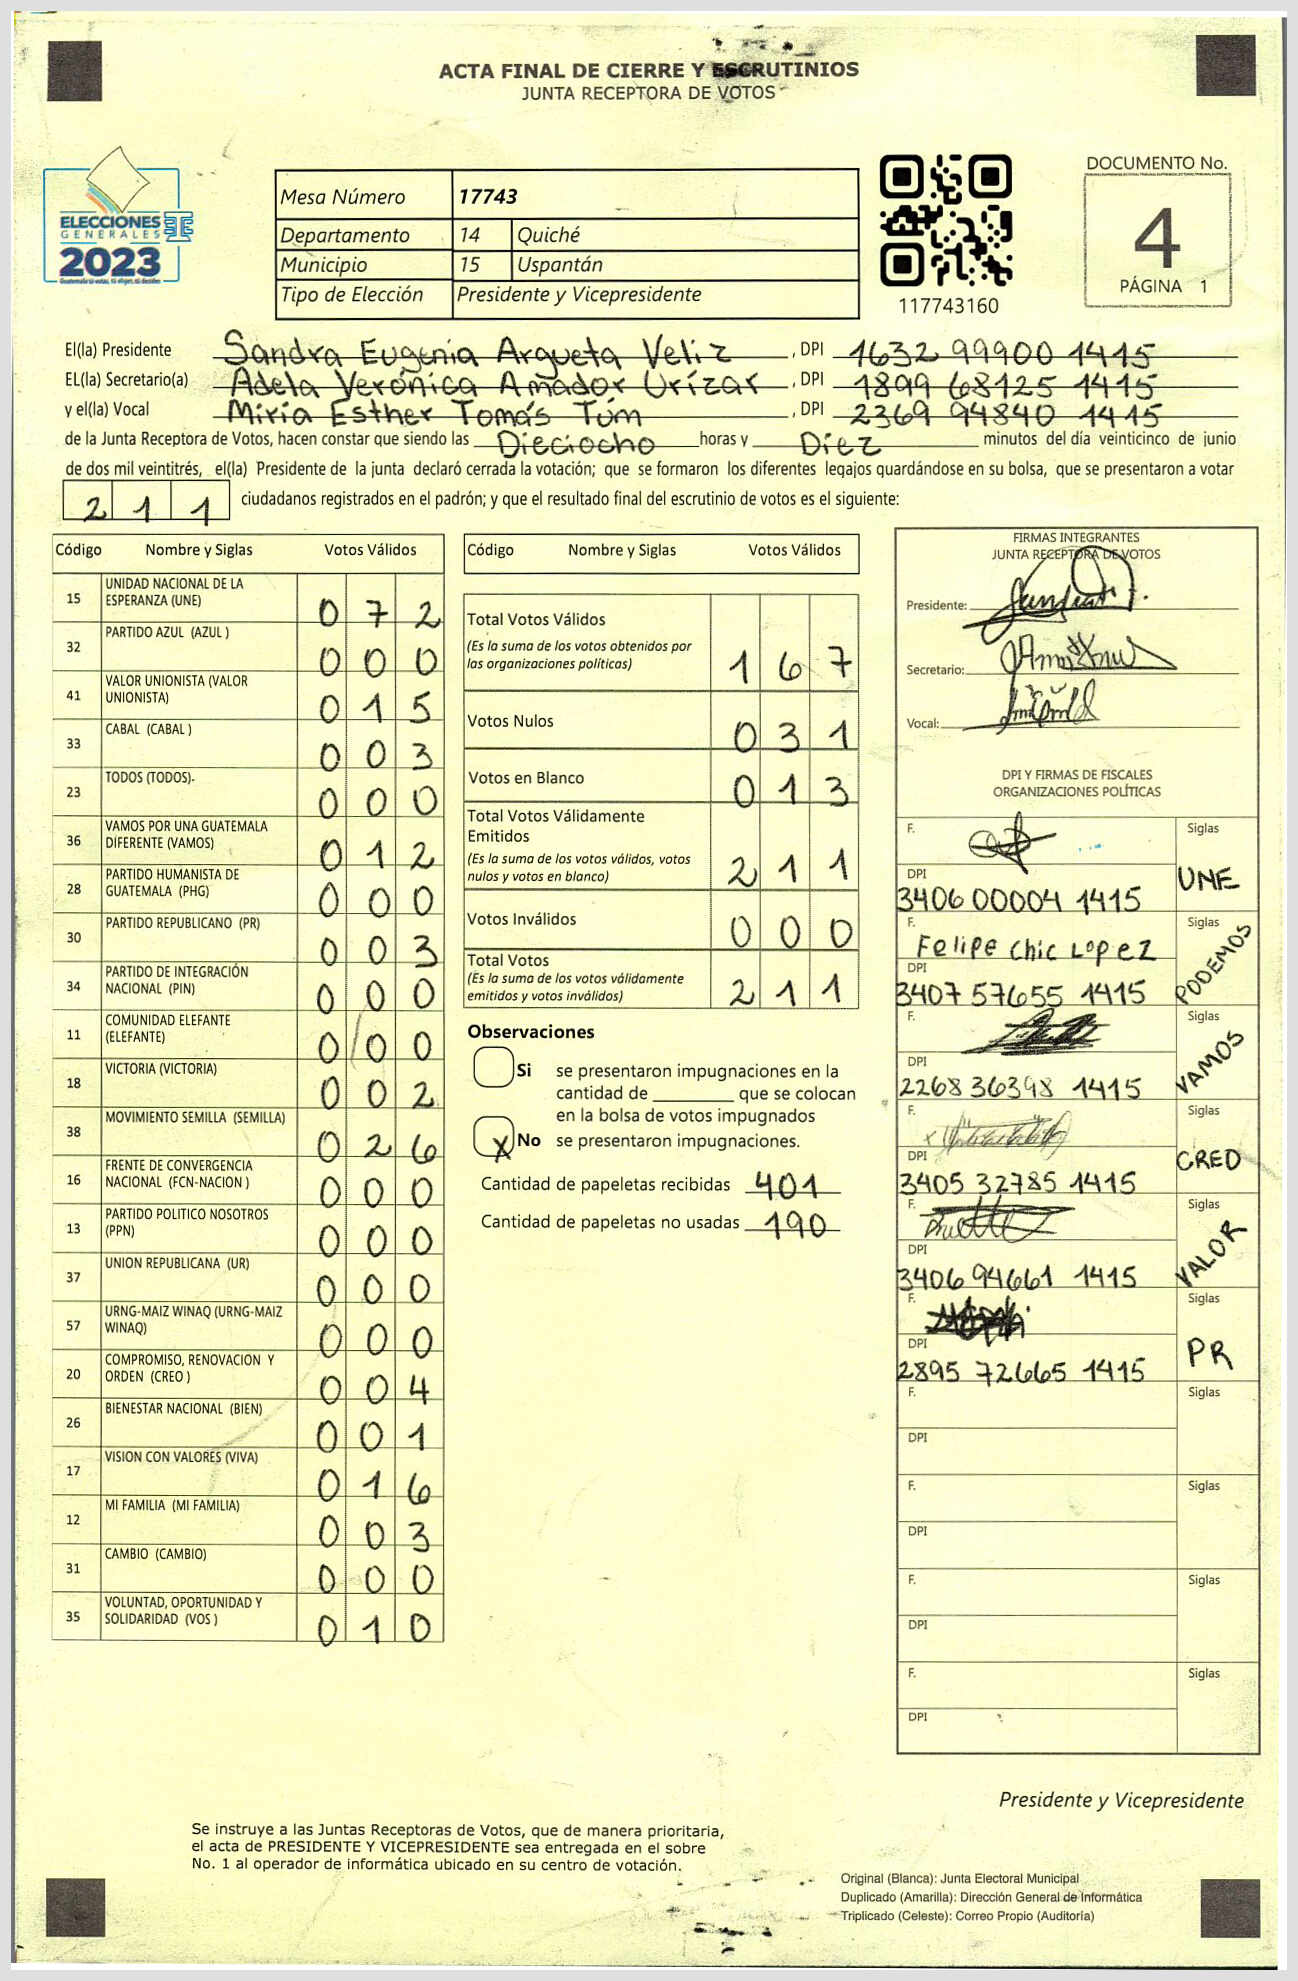 ACTA FINAL DE CIERRE Y ESCRUTINIOS
JUNTA RECEPTORA DE VOTOS
ELECCIONES
GENERALES
2023
Mesa Número 17743
Departamento 14 Quiché
Municipio 15 Uspantán
Tipo de Elección Presidente y Vicepresidente
117743160
DOCUMENTO No.
4
PÁGINA 1
El(la) Presidente Sandra Eugenia Argueta Veliz , DPI 1632 99900 1415
EL(la) Secretario(a) Adela Verónica Amador Urízar , DPI 1899 68125 1415
y el(la) Vocal Miria Esther Tomás Túm , DPI 2369 94840 1415
de la Junta Receptora de Votos, hacen constar que siendo las Dieciocho horas y Diez minutos del día veinticinco de junio
de dos mil veintitrés, el(la) Presidente de la junta declaró cerrada la votación; que se formaron los diferentes legajos quardándose en su bolsa, que se presentaron a votar
2 1 1 ciudadanos registrados en el padrón; y que el resultado final del escrutinio de votos es el siguiente:
Código Nombre y Siglas Votos Válidos
15 UNIDAD NACIONAL DE LA
ESPERANZA (UNE) 0 7 2
32 PARTIDO AZUL (AZUL ) 0 0 0
41 VALOR UNIONISTA (VALOR
UNIONISTA) 0 1 5
33 CABAL (CABAL ) 0 0 3
23 TODOS (TODOS) 0 0 0
36 VAMOS POR UNA GUATEMALA
DIFERENTE (VAMOS) 0 1 2
28 PARTIDO HUMANISTA DE
GUATEMALA (PHG) 0 0 0
30 PARTIDO REPUBLICANO (PR) 0 0 3
34 PARTIDO DE INTEGRACIÓN
NACIONAL (PIN) 0 0 0
11 COMUNIDAD ELEFANTE
(ELEFANTE) 0 0 0
18 VICTORIA (VICTORIA) 0 0 2
38 MOVIMIENTO SEMILLA (SEMILLA) 0 2 6
16 FRENTE DE CONVERGENCIA
NACIONAL (FCN-NACION ) 0 0 0
13 PARTIDO POLITICO NOSOTROS
(PPN) 0 0 0
37 UNION REPUBLICANA (UR) 0 0 0
57 URNG-MAIZ WINAQ (URNG-MAIZ
WINAQ) 0 0 0
20 COMPROMISO, RENOVACION Y
ORDEN (CREO ) 0 0 4
26 BIENESTAR NACIONAL (BIEN) 0 0 1
17 VISION CON VALORES (VIVA) 0 1 6
12 MI FAMILIA (MI FAMILIA) 0 0 3
31 CAMBIO (CAMBIO) 0 0 0
35 VOLUNTAD, OPORTUNIDAD Y
SOLIDARIDAD (VOS ) 0 1 0
Código Nombre y Siglas Votos Válidos
Total Votos Válidos
(Es la suma de los votos obtenidos por
las organizaciones políticas) 1 6 7
Votos Nulos 0 3 1
Votos en Blanco 0 1 3
Total Votos Válidamente
Emitidos
(Es la suma de los votos válidos, votos
nulos y votos en blanco) 2 1 1
Votos Inválidos 0 0 0
Total Votos
(Es la suma de los votos válidamente
emitidos y votos inválidos) 2 1 1
Observaciones
Si se presentaron impugnaciones en la
cantidad de ________ que se colocan
en la bolsa de votos impugnados
X No se presentaron impugnaciones.
Cantidad de papeletas recibidas 401
Cantidad de papeletas no usadas 190
FIRMAS INTEGRANTES
JUNTA RECEPTORA DE VOTOS
Presidente:
Secretario:
Vocal:
DPI Y FIRMAS DE FISCALES
ORGANIZACIONES POLÍTICAS
F. Siglas
DPI UNE
3406 00004 1415
F. Felipe Chic Lopez Siglas
DPI PODEMOS
3407 57655 1415
F. Siglas
DPI VAMOS
2268 36398 1415
F. Siglas
DPI CREO
3405 32785 1415
F. Siglas
DPI VALOR
3406 94661 1415
F. Siglas
DPI PR
2895 72665 1415
F. Siglas
DPI
F. Siglas
DPI
F. Siglas
DPI
F. Siglas
DPI
Presidente y Vicepresidente
Se instruye a las Juntas Receptoras de Votos, que de manera prioritaria,
el acta de PRESIDENTE Y VICEPRESIDENTE sea entregada en el sobre
No. 1 al operador de informática ubicado en su centro de votación.
Original (Blanca): Junta Electoral Municipal
Duplicado (Amarilla): Dirección General de Informática
Triplicado (Celeste): Correo Propio (Auditoría)